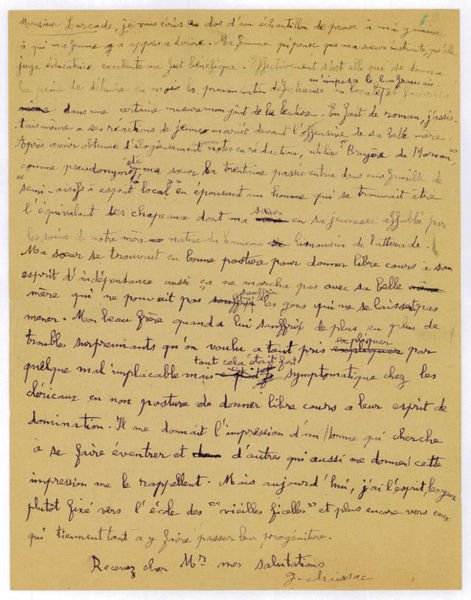 Monsieur Larcade, je vous écris au dos d'un échantillon de prose à ma femme
à qui ma femme y a appris à écrire. Ma femme qui pense que ma sœur institutrice qu'elle
juge éducatrice excellente me fut bénéfique. Effectivement c'est elle qui se donna
m'imposa le bon français
la peine de détruire en moi la prononciation défectueuse
dans une certaine mesure mon goût de la lecture. En fait de roman, j'assis-
tai même à ses réactions de jeune mariée devant l'offensive de sa belle mère.
Après avoir obtenu d'élogieuses notes en rédaction, utilisé "Bruyère du Morvan"
comme pseudonyme etc ma sœur la trentaine passée entra dans une famille de
semi-oisifs à esprit local en épousant un homme qui se trouvait être
l'équivalent des chapeaux dont ma sœur en sa jeunesse affublée par
les soins de notre mère native du hameau limousin de
Ma sœur se trouvait en bonne posture pour donner libre cours à son
esprit d'indépendance aussi ça ne marcha pas avec sa belle
mère qui ne pouvait pas souffrir les gens qui ne se laissent pas
mener. Mon beau frère quand à lui souffrit de plus en plus de
troubles surprenants qu'on voulu a tant pris expliquer par
tout cela était fort
quelque mal implacable mais symptomatique chez les
cléricaux en non posture de donner libre cours a leur esprit de
domination. Il me donnait l'impression d'un homme qui cherche
à se faire éventrer et d'autres qui aussi me donnent cette
impression me le rappellent. Mais aujourd'hui, j'ai l'esprit
plutôt fixé vers l'école des "vieilles ficelles" et plus encore vers ceux
qui tiennent tant a y faire passer leur progéniture.
Recevez cher Mr mes salutations
g. chaissac